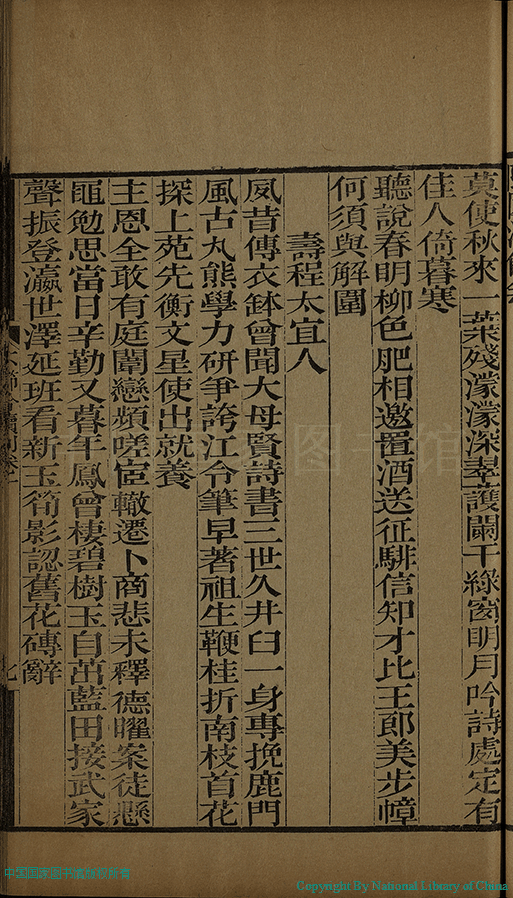 莫使秋來一葉殘濛濛深翠護闌干綠窗明月吟詩處定有
佳人倚暮寒
聽說春明柳色肥相邀置酒送征騑信知才比王郎美步幛
何須與解圍
壽程太宜人
夙昔傳衣鉢曾聞大母賢詩書三世久井臼一身專挽鹿門
風古丸熊學力研爭誇江令筆早著祖生鞭桂折南枝首花
探上苑先衡文星使出就養
主恩全敢有庭闈戀頻嗟宦轍遷卜商悲未釋德曜案徒懸
黽勉思當日辛勤又暮年鳳曾棲碧樹玉自茁藍田接武家
聲振登瀛世澤延班看新玉筍影認舊花磚辭
中国国家图书馆版权所有
Copyright By National Library of China